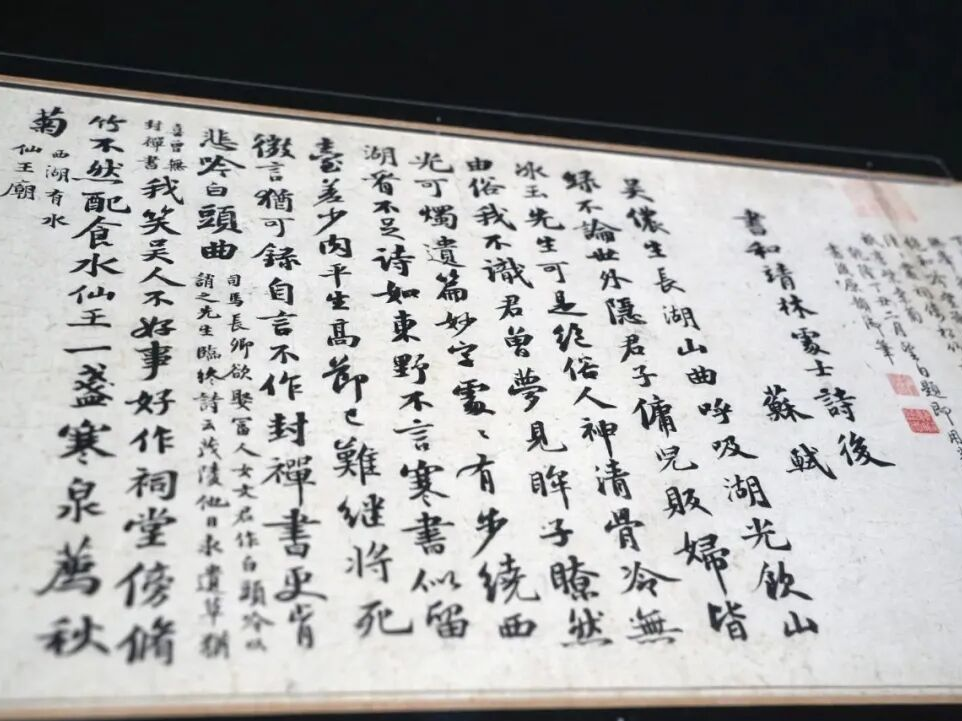 乾隆丁丑二月望日題即用
書和靖林處士詩後
蘇軾
吳儂生長湖山曲呼吸湖光飲山
綠不論世外隱君子傭兒販婦皆
冰玉先生可是絕俗人神清骨冷無
由俗我不識君曾夢見眸子瞭然
光可燭遺篇妙字處〻有步繞西
湖看不足詩如東野不言寒書似留
臺差少肉平生高節已難繼將死
微言猶可錄自言不作封禪書更肯
悲吟白頭曲
司馬長卿欲娶富人女文君作白頭吟以
誚之先生臨終詩云茂陵他日求遺草猶
喜曾無
封禪書
我笑吳人不好事好作祠堂傍脩
竹不然配食水仙王一盞寒泉薦秋
菊
西湖有水
仙王廟